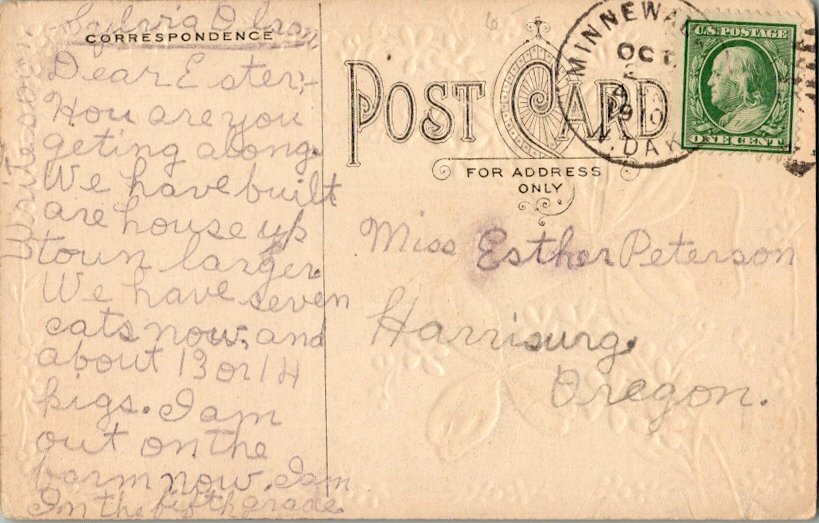 Sylvia Olson
CORRESPONDENCE
Dear Ester:-
How are you
geting along.
We have built
are house up
town larger.
We have seven
cats now, and
about 13 or 14
pigs. I am
out on the
farm now. I am
In the fifth grade.
Write soon
POST CARD
FOR ADDRESS
ONLY
MINNEWAU
OCT
2
1910
N. DAK
U.S. POSTAGE
ONE CENT
Miss Esther Peterson
Harrisurg.
Oregon.
6